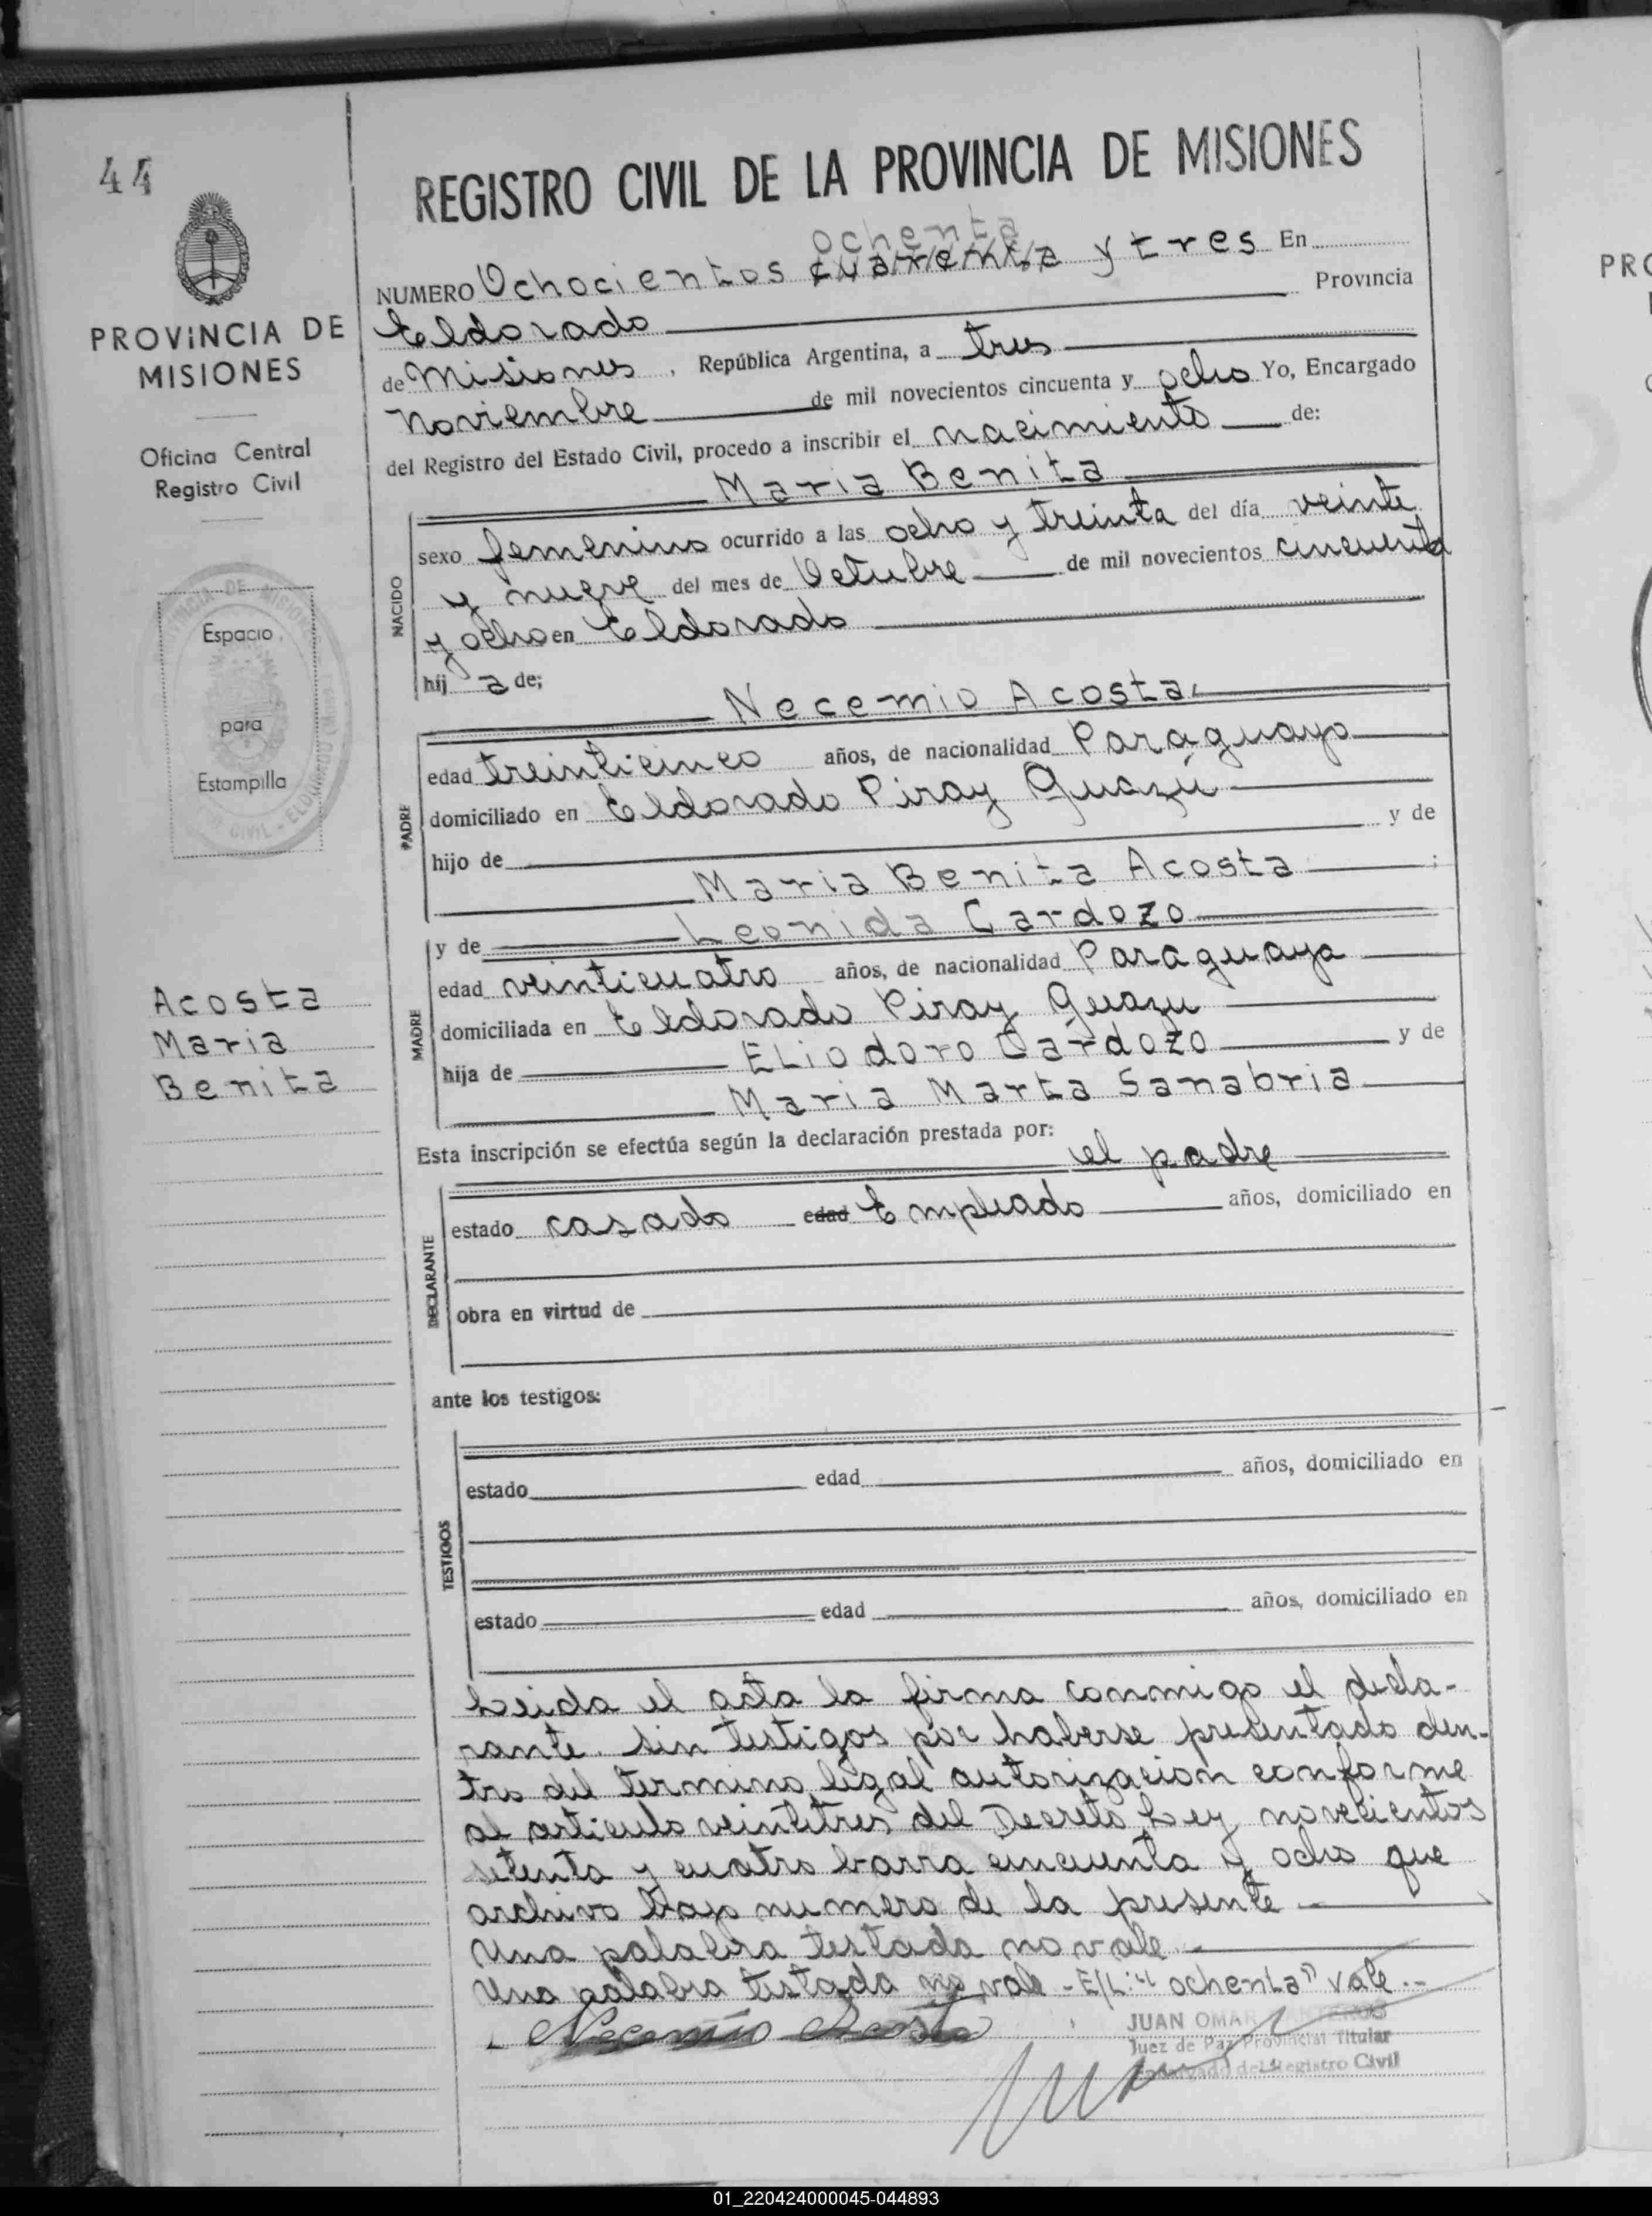 44
PROVINCIA DE
MISIONES
Oficina Central
Registro Civil
Espacio
para
Estampilla
Acosta
Maria
Benita
REGISTRO CIVIL DE LA PROVINCIA DE MISIONES
ochenta
NUMERO Ochocientos cuarenta y tres En
Eldorado Provincia
de Misiones, República Argentina, a tres
Noviembre de mil novecientos cincuenta y ocho Yo, Encargado
del Registro del Estado Civil, procedo a inscribir el nacimiento de:
Maria Benita
NACIDO
sexo femenino ocurrido a las ocho y treinta del día veinte
y nueve del mes de Octubre de mil novecientos cincuenta
y ocho en Eldorado
hij a de;
Necemio Acosta
PADRE
edad treinticinco años, de nacionalidad Paraguayo
domiciliado en Eldorado Piray Guazú
hijo de y de
Maria Benita Acosta ;
y de Leonida Cardozo
MADRE
edad veinticuatro años, de nacionalidad Paraguaya
domiciliada en Eldorado Piray Guazu
hija de Eliodoro Cardozo y de
Maria Marta Sanabria
Esta inscripción se efectúa según la declaración prestada por:
el padre
DECLARANTE
estado casado edad Empleado años, domiciliado en
obra en virtud de
ante los testigos:
TESTIGOS
estado edad años, domiciliado en
estado edad años, domiciliado en
Leida el acta la firma conmigo el decla-
rante. Sin testigos por haberse presentado den-
tro del termino legal autorizacion conforme
al articulo veintitres del Decreto Ley novecientos
setenta y cuatro barra cincuenta y ocho que
archivo bajo numero de la presente
Una palabra testada no vale
Una palabra testada no vale - E/L: "ochenta" vale.-
Necemio Acosta
JUAN OMAR
Juez de Paz Provincial Titular
Encargado del Registro Civil
PRO
01_220424000045-044893